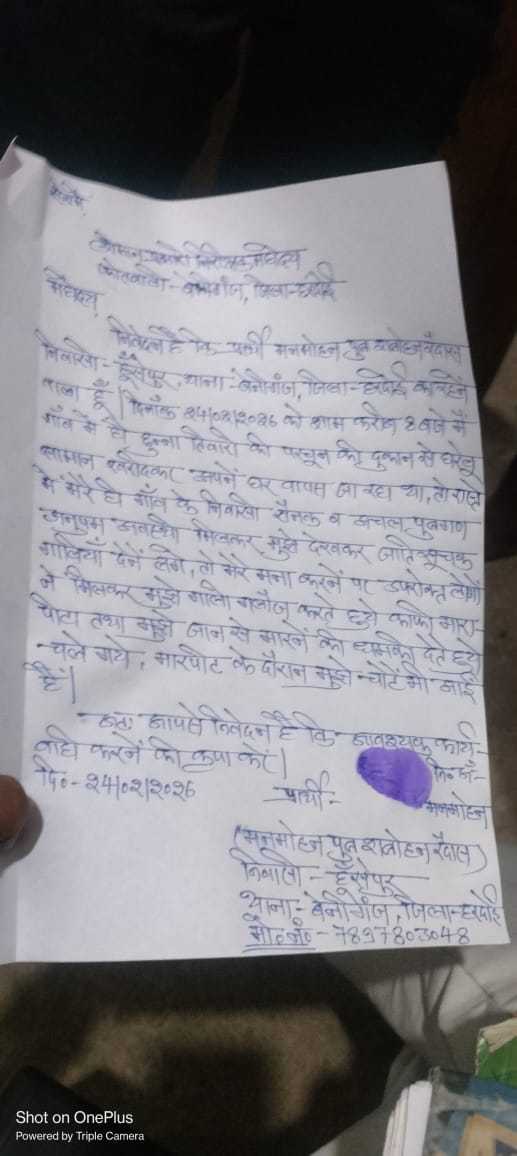 सेवा में,
श्रीमान् प्रभारी निरीक्षक महोदय,
कोतवाली - बेनीगंज, जिला - हरदोई
महोदय,
निवेदन है कि प्रार्थी मनमोहन पुत्र रैदास
निवासी - हूँसेपुर, थाना - बेनीगंज, जिला - हरदोई का रहने
वाला हूँ। दिनाँक 24/02/2026 को शाम करीब 8 बजे मैं
गाँव में ही छुन्ना तिवारी की परचून की दुकान से घरेलू
सामान खरीदकर अपने घर वापस जा रहा था, तो रास्ते
में मेरे ही गाँव के निवासी रौनक व अचल पुत्रगण
अनुपम अवस्थी मिलकर मुझे देखकर जातिसूचक
गालियाँ देनें लगे, तो मेरे मना करनें पर उपरोक्त लोगों
ने मिलकर मुझे गाली गलौज करते हुये काफी मारा-
पीटा तथा मुझे जान से मारनें की धमकी देते हुये
चले गये, मारपीट के दौरान मुझे चोटें भी आई
हैं।
अतः आपसे निवेदन है कि आवश्यक कार्य-
वाही करनें की कृपा करें।
दि०- 24/02/2026
नि० अँ०-
प्रार्थी -
मनमोहन
(मनमोहन पुत्र रैदास)
निवासी - हूँसेपुर
थाना - बेनीगंज, जिला - हरदोई
मो० नं० - 7897803048
Shot on OnePlus
Powered by Triple Camera